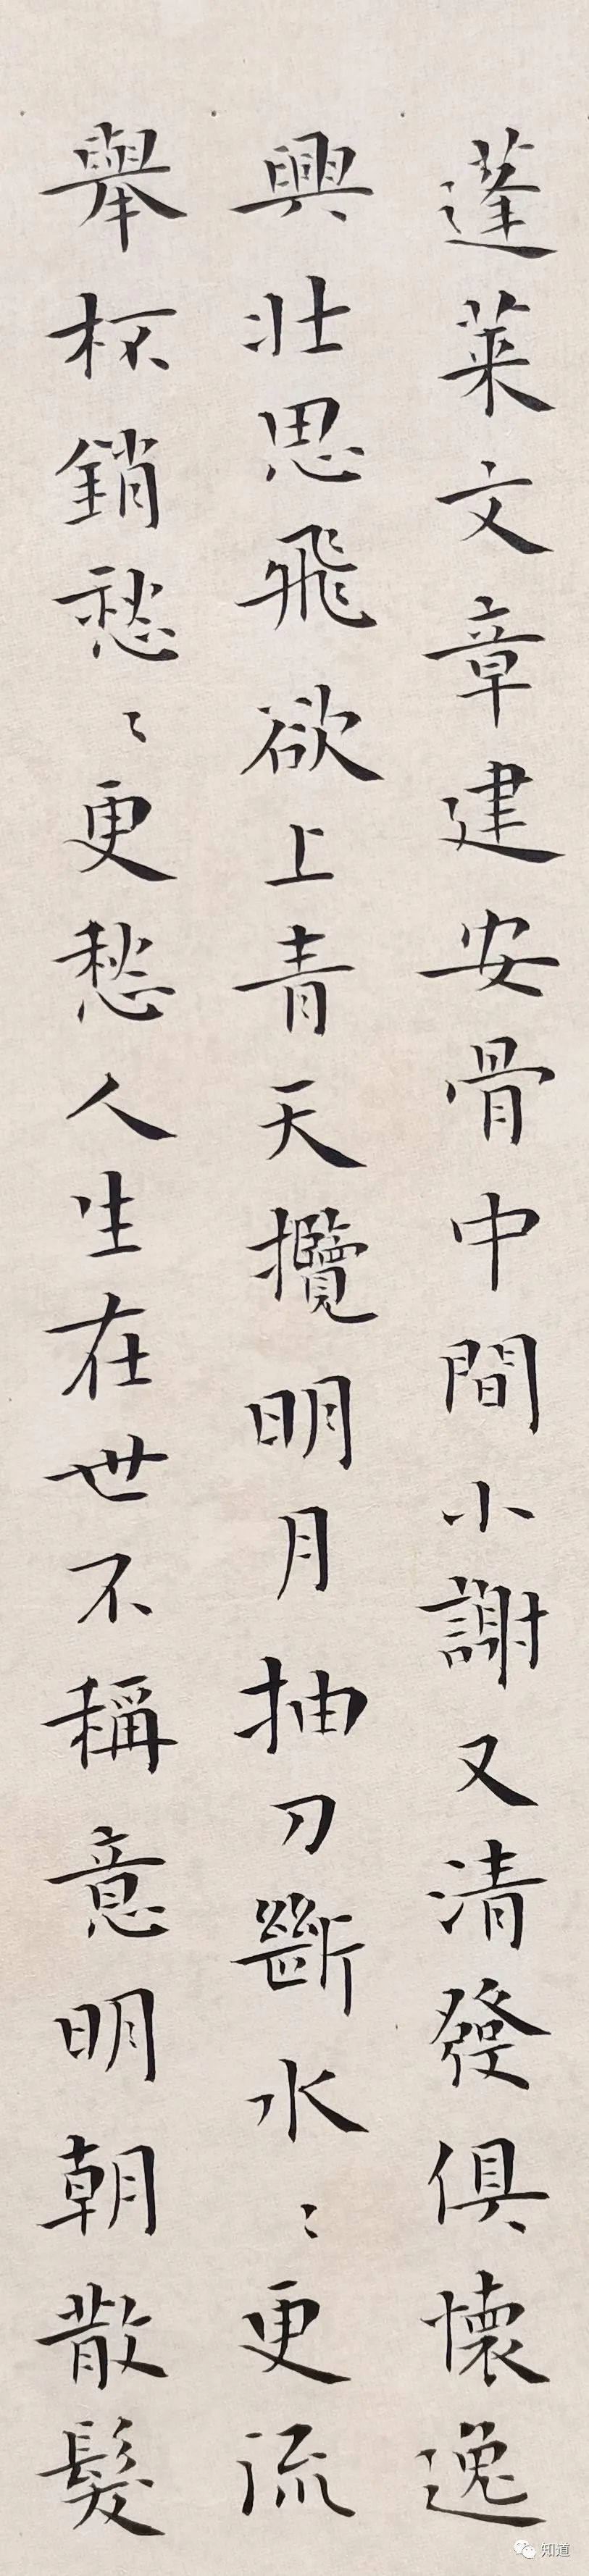 蓬萊文章建安骨中間小謝又清發俱懷逸
興壯思飛欲上青天攬明月抽刀斷水〻更流
舉杯銷愁〻更愁人生在世不稱意明朝散髮
知道